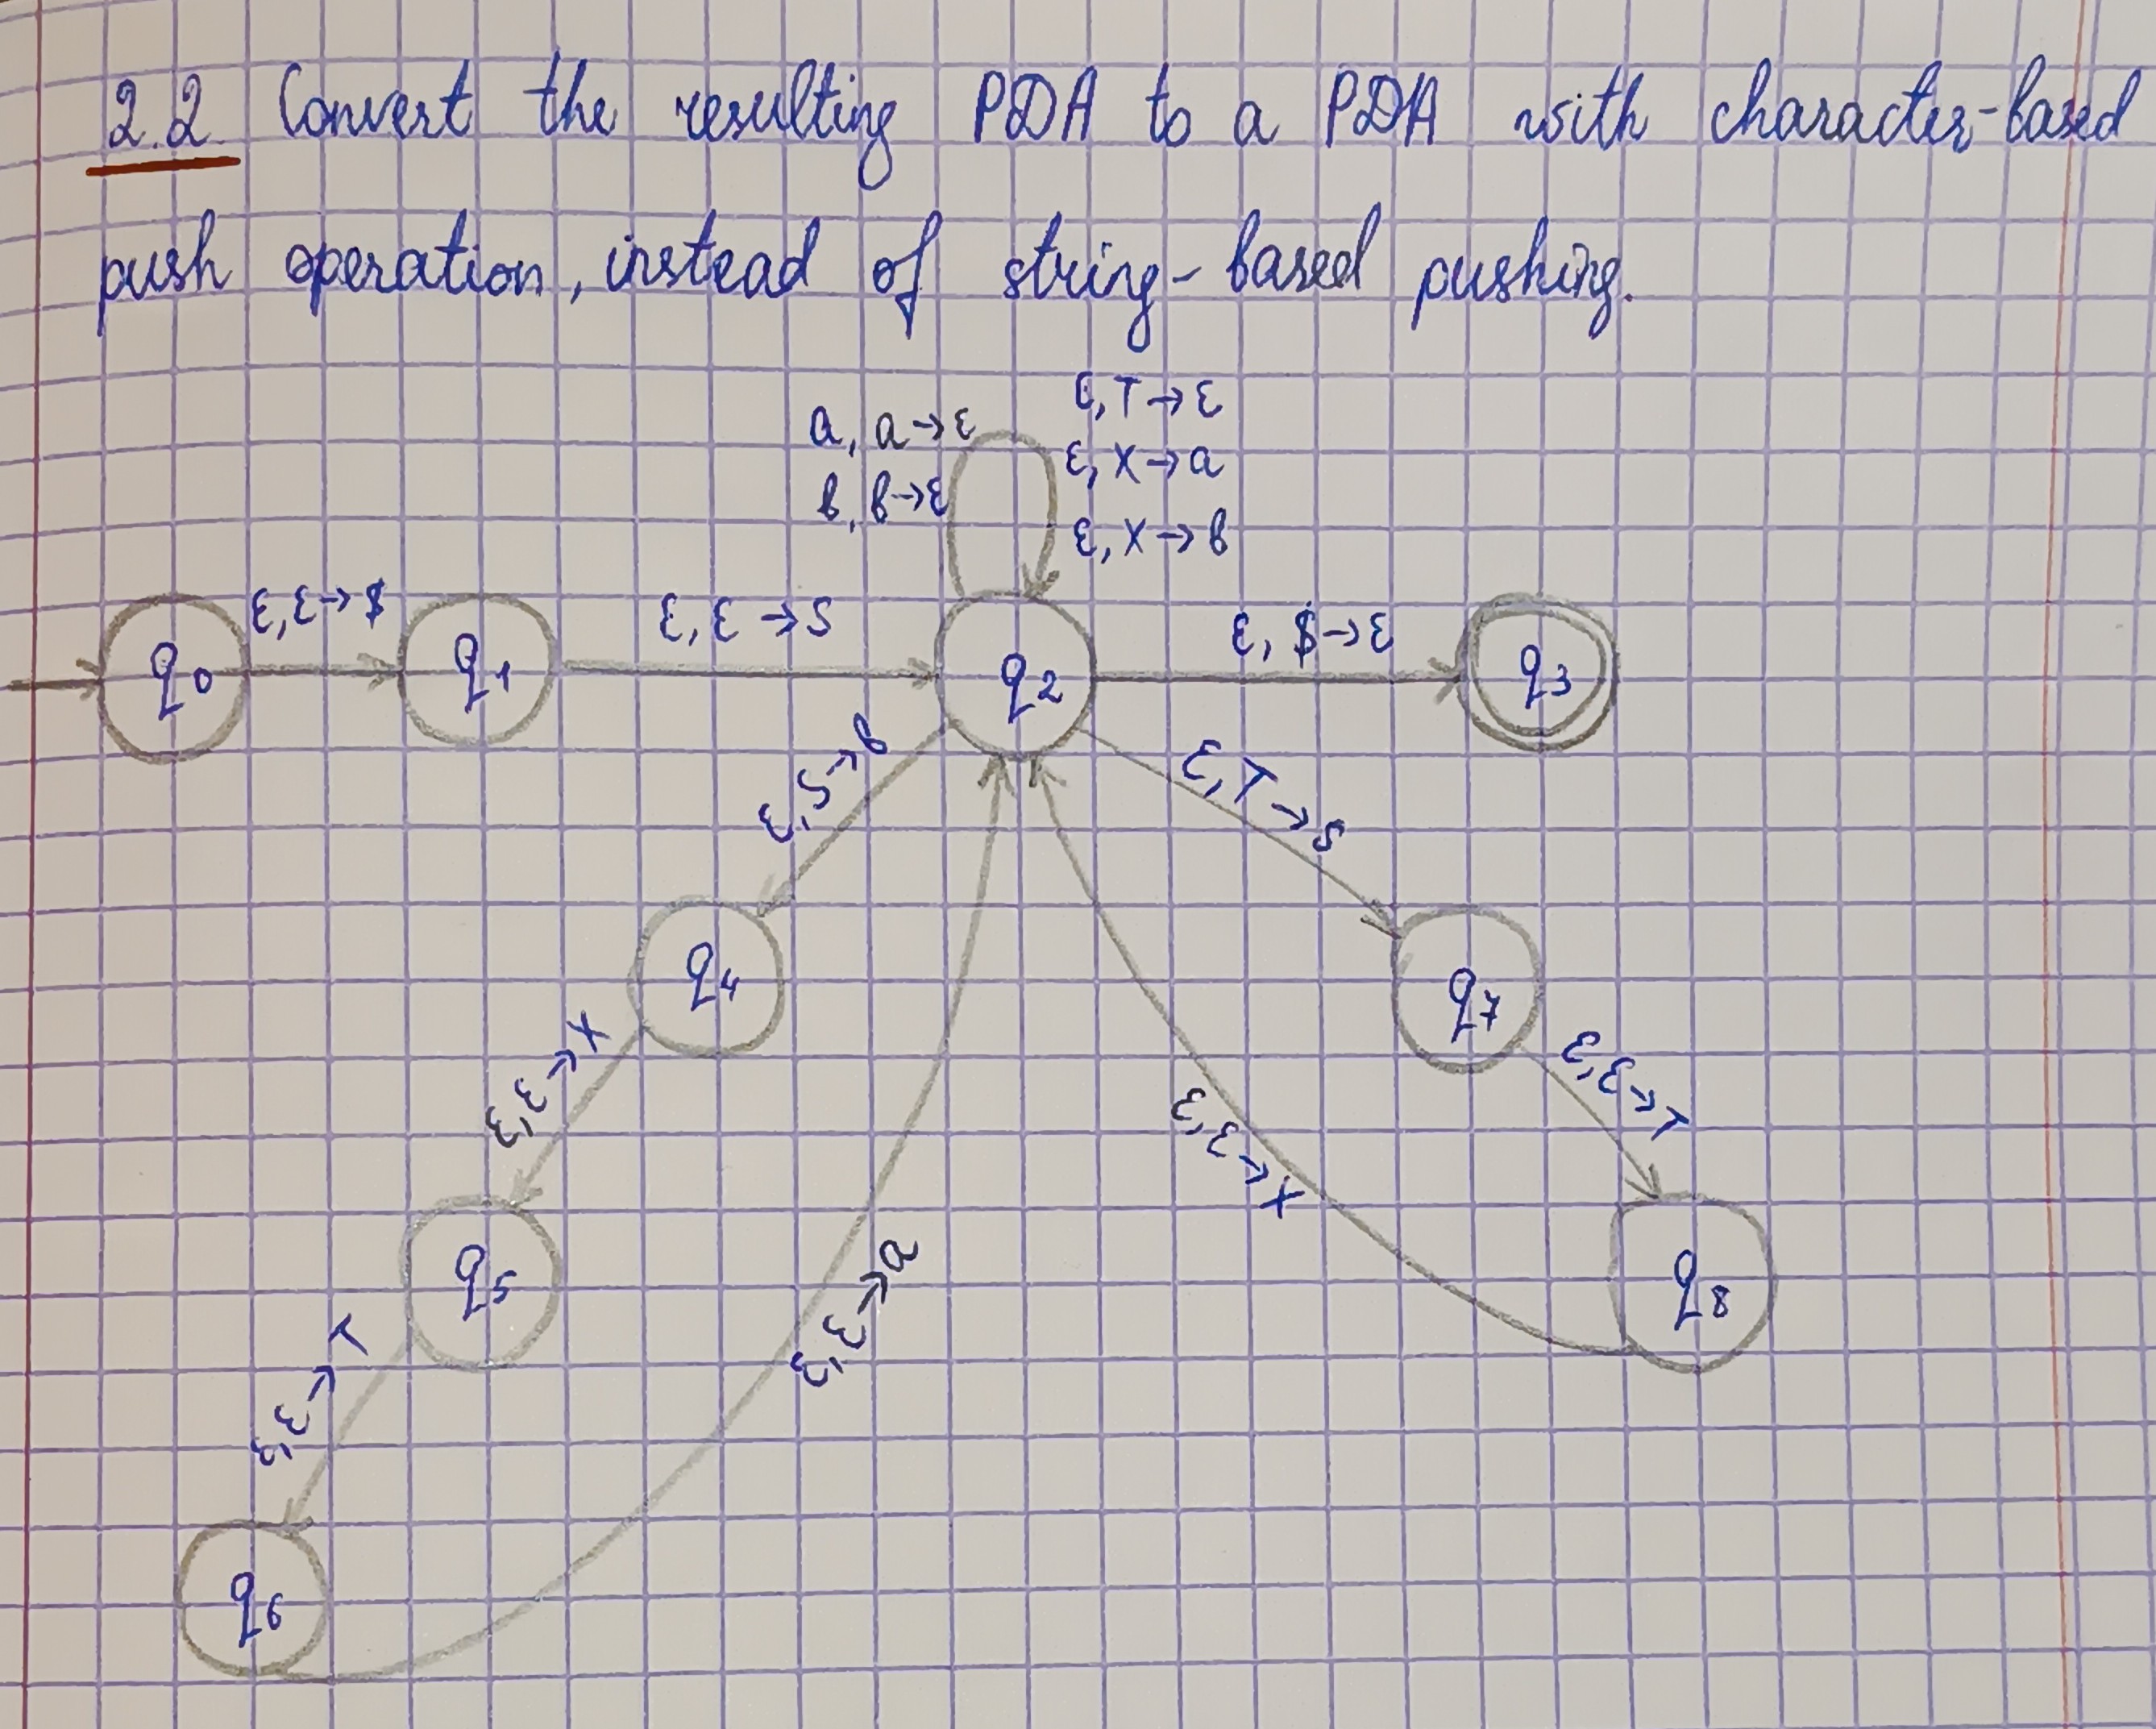 2.2. Convert the resulting PDA to a PDA with character-based
push operation, instead of string-based pushing.
a, a→ε
b, b→ε
ε, T→ε
ε, X→a
ε, X→b
q0
ε, ε→$
q1
ε, ε→S
q2
ε, $→ε
q3
ε, S→b
ε, T→S
q4
q7
ε, ε→X
ε, ε→T
ε, ε→X
q5
ε, ε→a
q8
ε, ε→T
q6